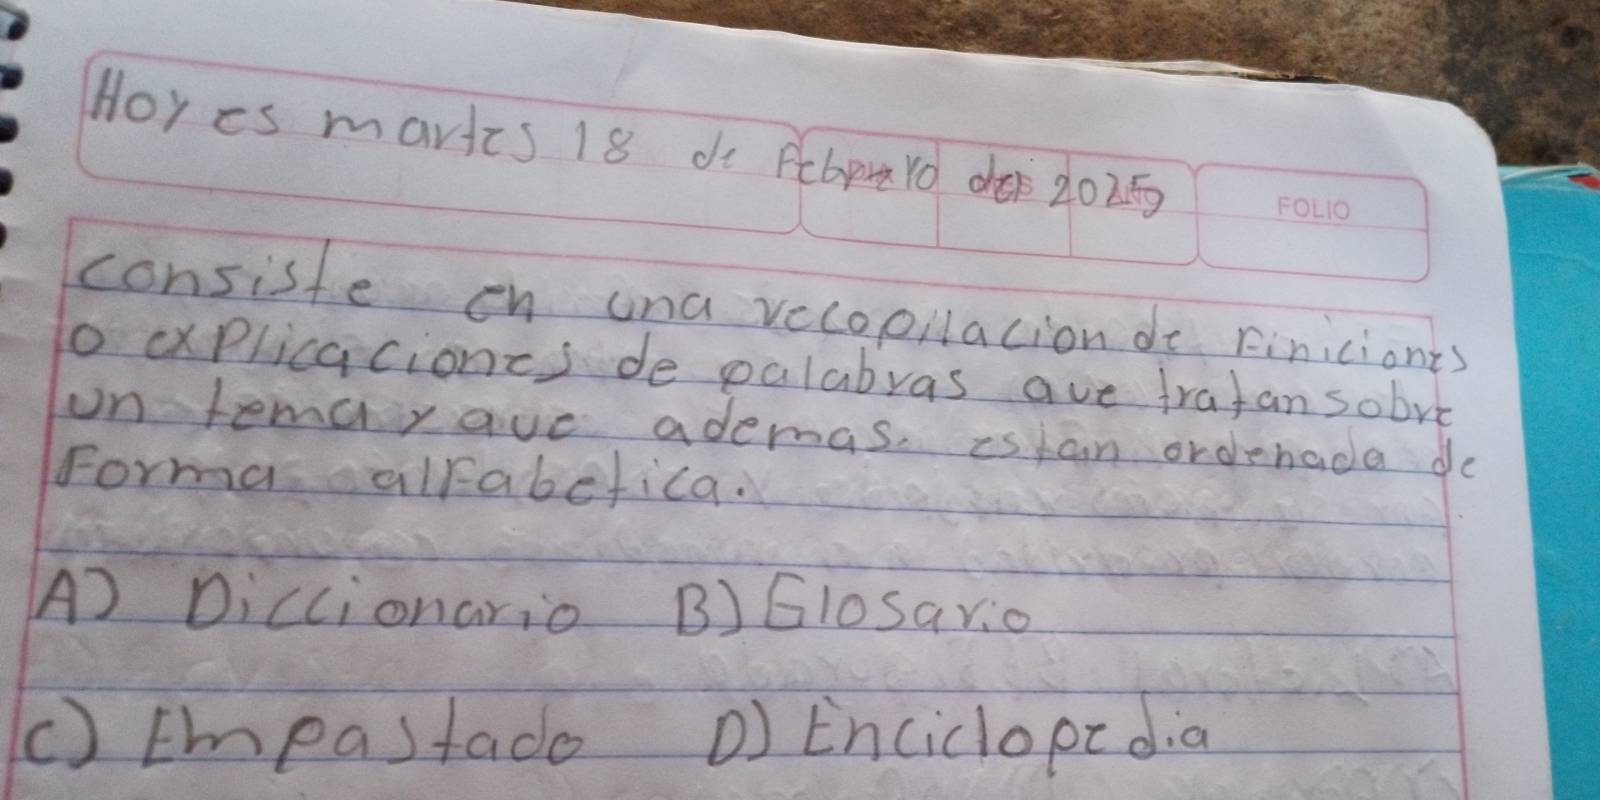 Hoy es martes 18 de Febrero del 2025
FOLIO
consiste en una recopilacion de Finiciones
o explicaciones de palabras que tratan sobre
un tema y que ademas. estan ordenada de
Forma alFabetica.
A) Diccionario B) Glosario
C) Empastado D) Enciclopedia